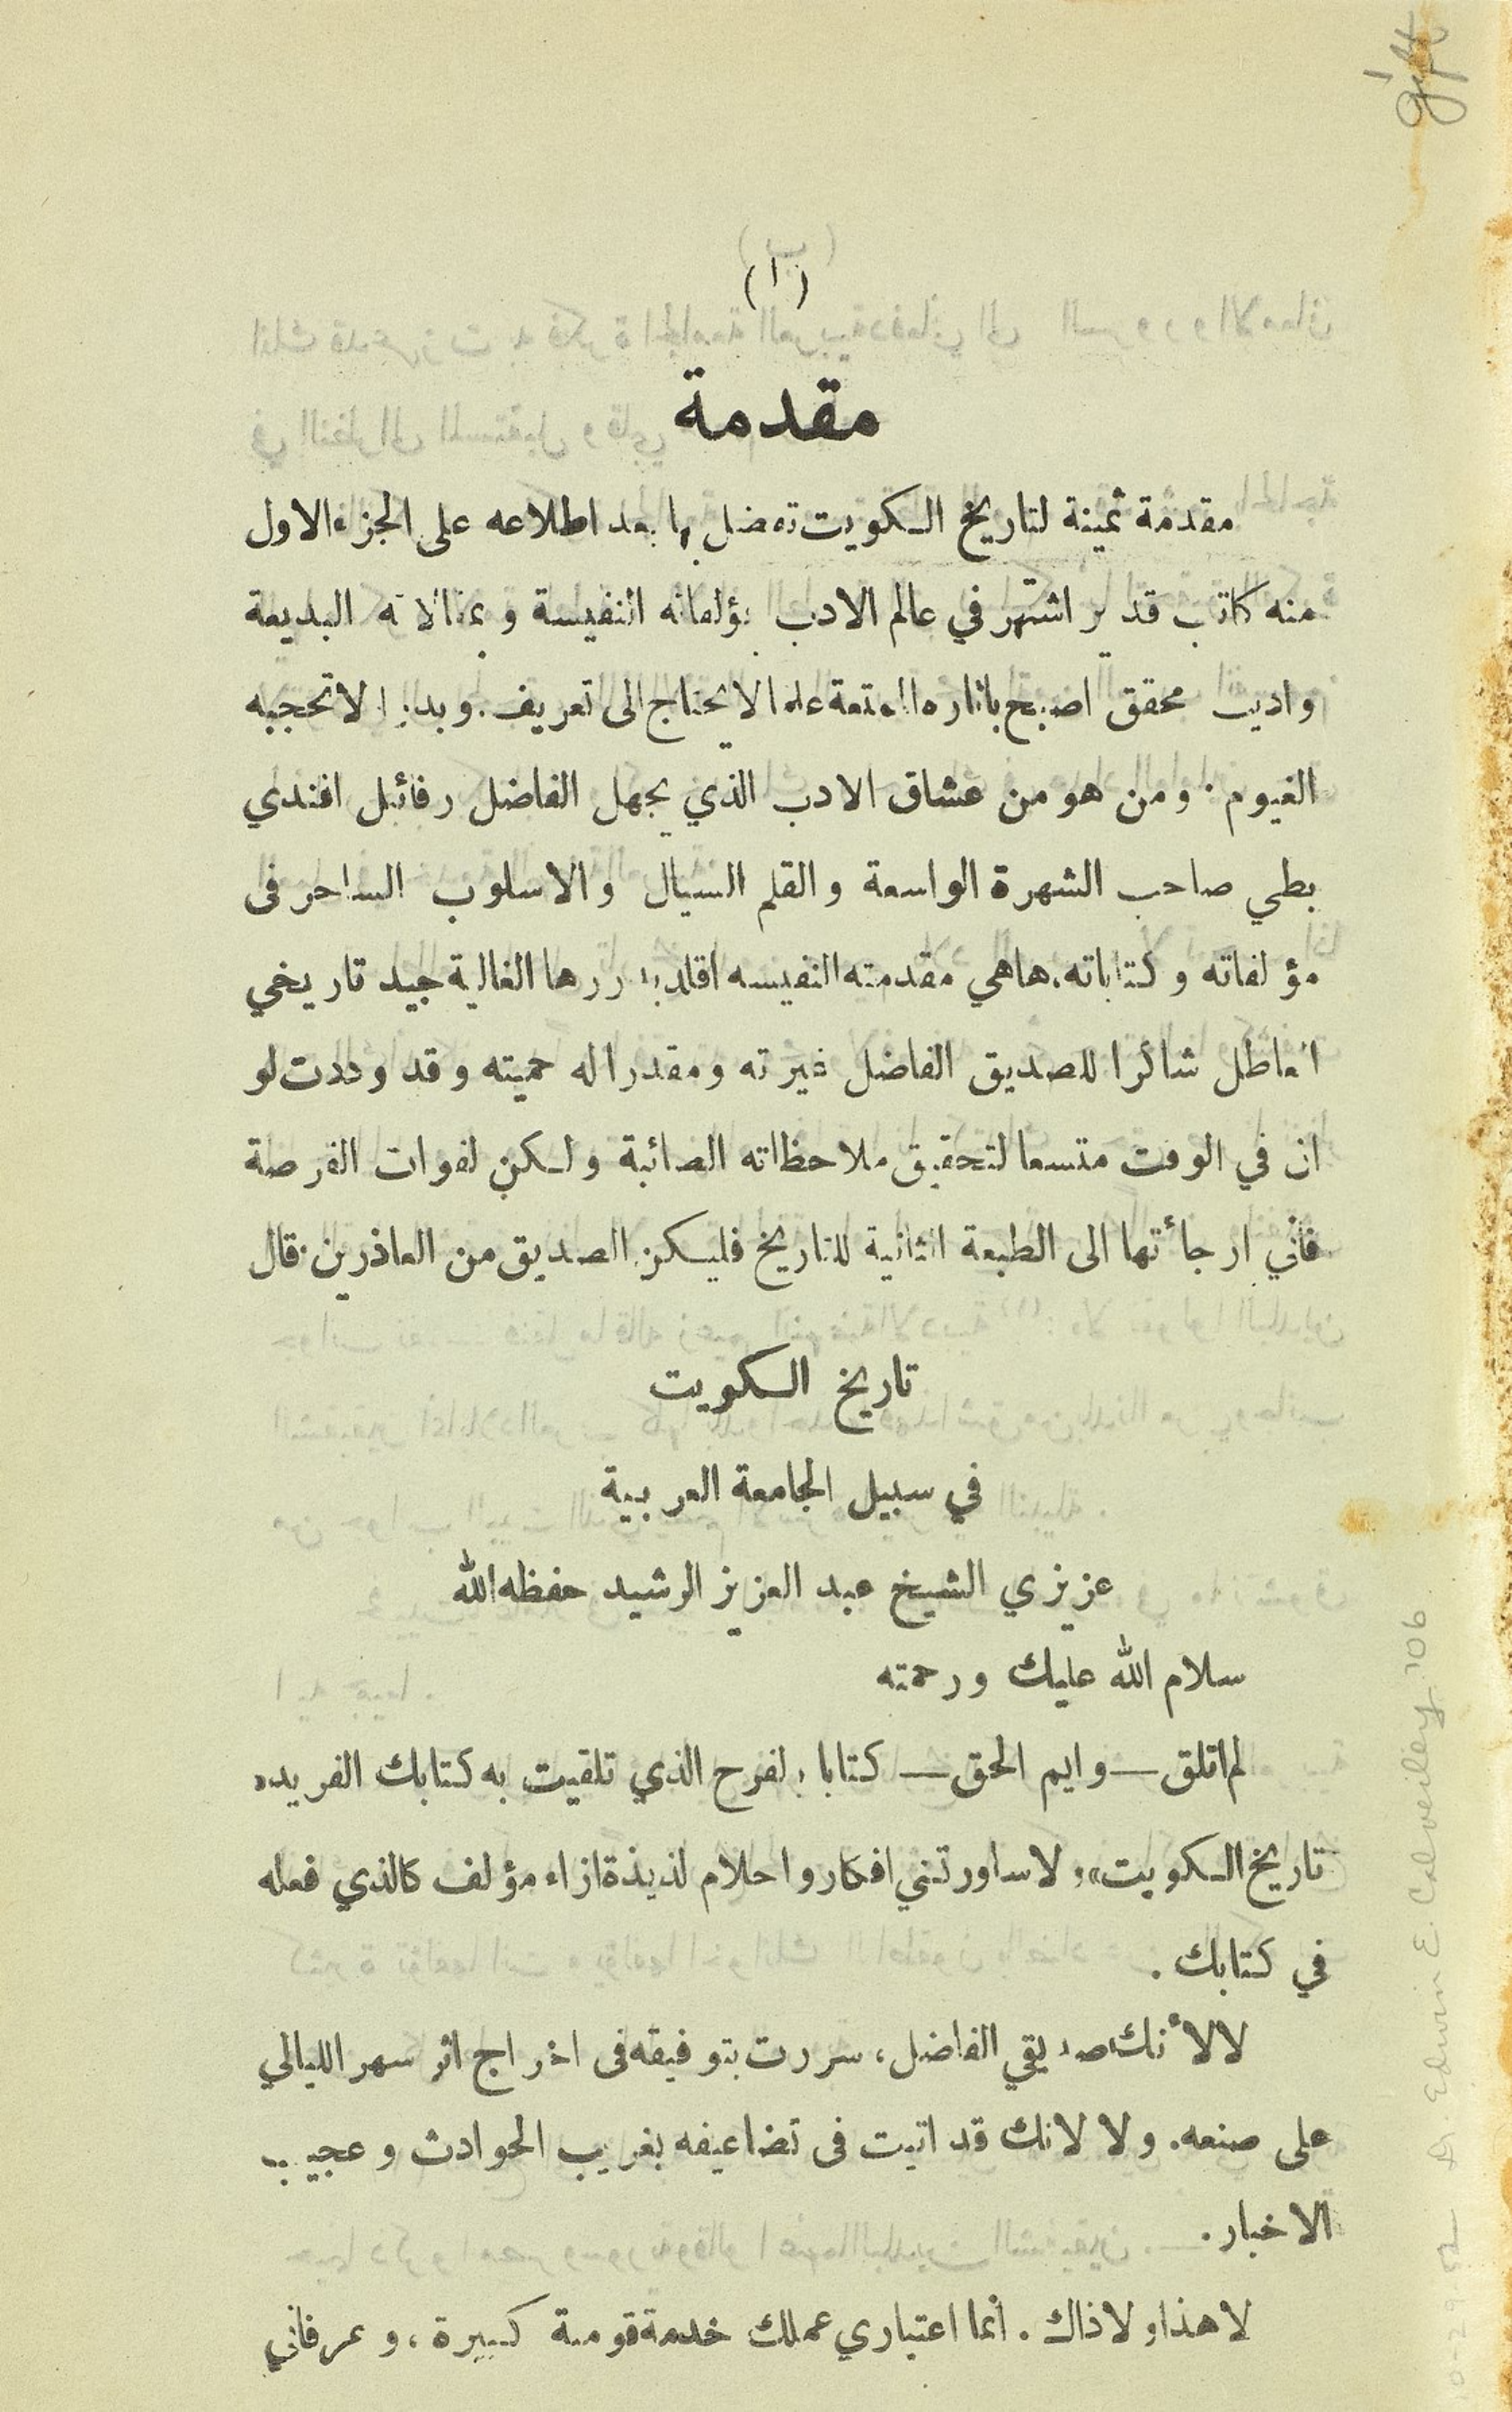 gift
(ا)
مقدمة
مقدمة ثمينة لتاريخ الكويت تفضل بها بعد اطلاعه على الجزء الاول
منه كاتب قدير اشتهر في عالم الادب بؤلفاته النفيسة وبمقالاته البديعة
واديب محقق اصبح بآثاره الممتعة علما لا يحتاج الى تعريف. وبدرا لا تحجبه
الغيوم. ومن هو من عشاق الادب الذي يجهل الفاضل رفائيل افندي
بطي صاحب الشهرة الواسعة والقلم السيال والاسلوب الساحر فى
مؤلفاته وكتاباته. هاهي مقدمته النفيسه اقلد بدررها الغالية جيد تاريخي
العاطل شاكرا للصديق الفاضل غيرته ومقدرا له حميته وقد وددت لو
ان في الوقت متسعا لتحقيق ملاحظاته الصائبة ولكن لفوات الفرصة
فأني ارجأتها الى الطبعة الثانية للتاريخ فليكن الصديق من العاذرين. قال
تاريخ الكويت
في سبيل الجامعة العربية
عزيزي الشيخ عبد العزيز الرشيد حفظه الله
سلام الله عليك ورحمته
لم اتلق — وايم الحق — كتابا بالفرح الذي تلقيت به كتابك الفريد «
تاريخ الكويت» ولا ساورتني افكار واحلام لذيذة ازاء مؤلف كالذي فعله
في كتابك .
لا لأنك صديقي الفاضل، سررت بتوفيقه فى اخراج اثر سهر الليالي
على صنعه. ولا لانك قد اتيت فى تضاعيفه بغريب الحوادث وعجيب
الاخبار .
لا هذا ولا ذاك . انما اعتباري عملك خدمة قومية كبيرة ، وعرفاني
Dr. Edwin E. Calverley